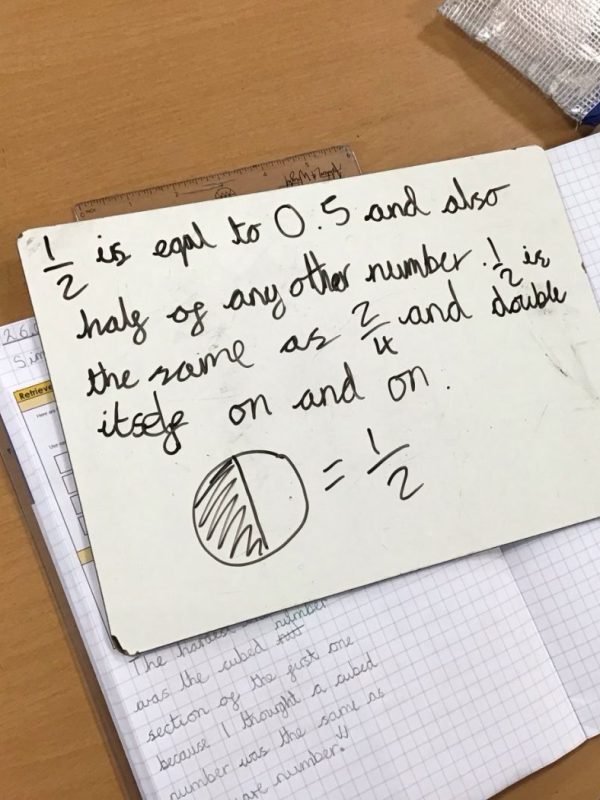 1/2 is eqal to 0.5 and also
half of any other number. 1/2 is
the same as 2/4 and double
itself on and on.
= 1/2
26.
Sim
Retrieve
The hardest number
was the cubed
section of the first one
because I thought a cubed
number was the same as
number.